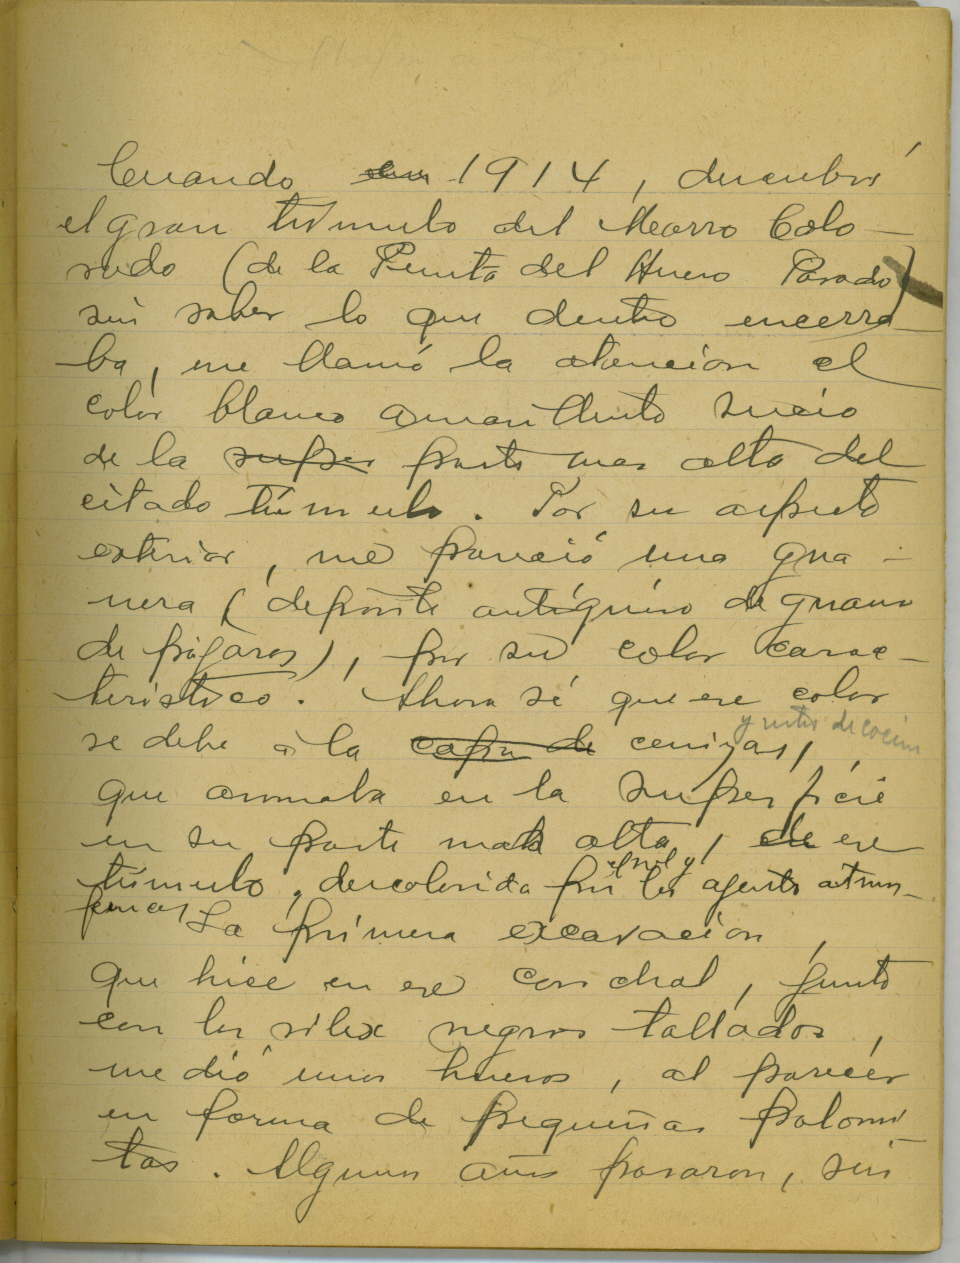 Cuando en 1914, descubrí
el gran túmulo del Morro Colo-
rado (de la Punta del Hueso Parado)
sin saber lo que dentro encerra-
ba, me llamó la atencion el
color blanco amarillento sucio
de la super parte mas alta del
citado túmulo. Por su aspecto
exterior, me pareció una gua-
nera (depósito antíguino de guano
de pájaros), por su color carac-
terístico. Ahora sé que ese color
se debe a la capa de cenizas,
y restos de cocina
que asomaba en la superficie
en su parte mas alta, de ese
el sol y
túmulo, descolorida por los agentes atmos-
fericos
La primera excavación,
que hice en ese conchal, junto
con los silex negros tallados,
me dió unos huesos, al parecer
en forma de pequeñas palomi-
tas. Algunos años pasaron, sin